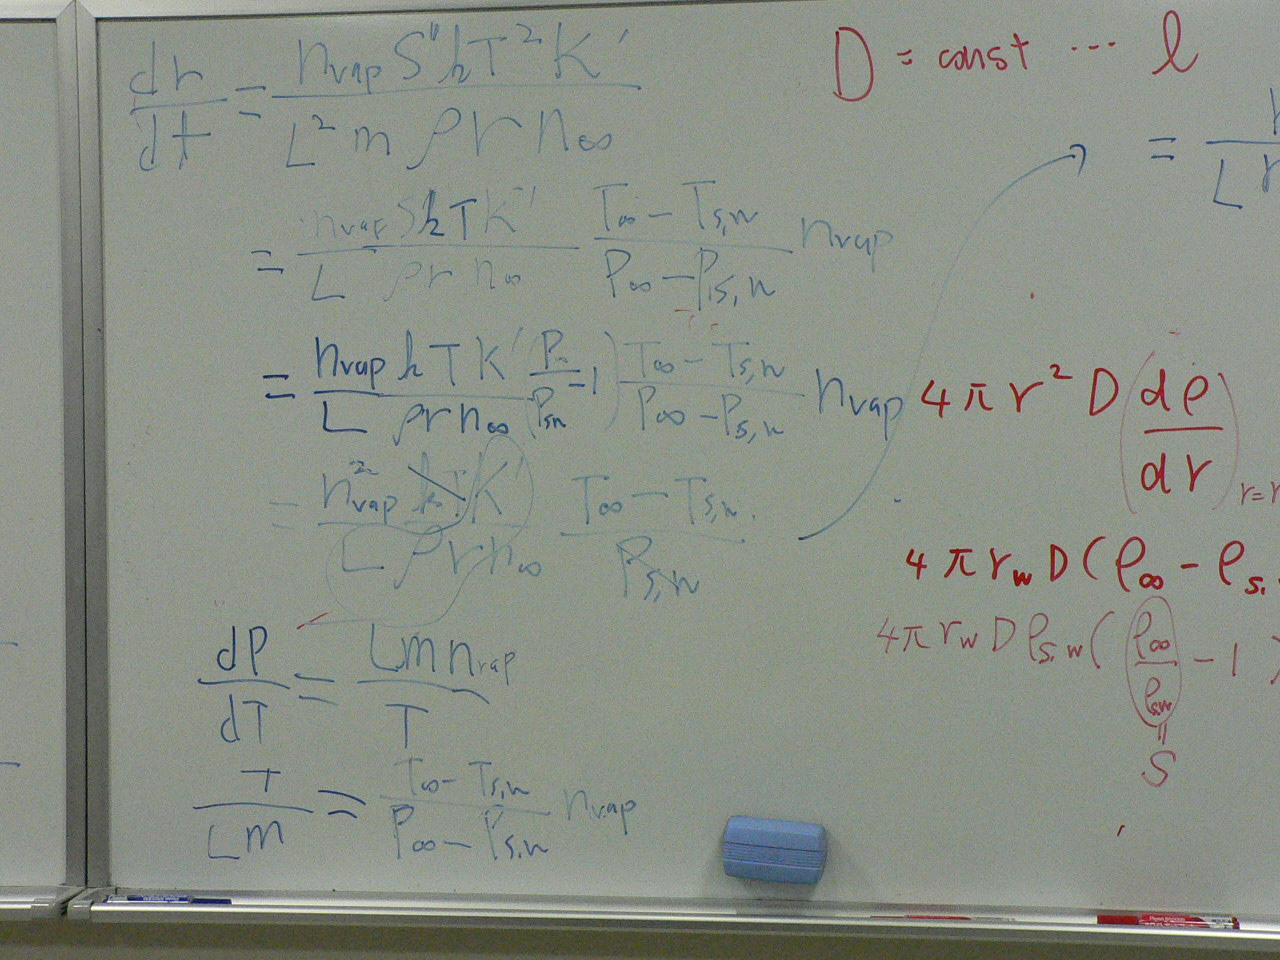 dr/dt = n_vap S'' k T² K' / L² m ρ r n_∞
= n_vap S k T K' / L ρ r n_∞ · T_∞ − T_s,w / P_∞ − P_s,w n_vap
= n_vap k T K' / L ρ r n_∞ (P_∞ / P_sw − 1) T_∞ − T_s,w / P_∞ − P_s,w n_vap
= n²_vap k T K' / L ρ r n_∞ · T_∞ − T_s,w / P_s,w
dP/dT = L m n_vap / T
T / L m = T_∞ − T_s,w / P_∞ − P_s,w n_vap
D = const ... l
=
4πr² D (dρ/dr)
4πr_w D (ρ_∞ − ρ_s,
4πr_w D ρ_s,w (ρ_∞ / ρ_s,w − 1)
=
S